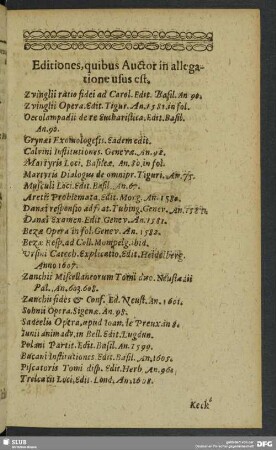 Editiones, quibus Auctor in allega-
tione usus est.
Zvinglii ratio fidei ad Carol. Edit. Basil. An 90.
Zvinglii Opera. Edit. Tigur. An. 1581. in fol.
Oecolampadii de re Eucharistica, Edit. Basil.
An. 90.
Grynæi Exomologesis. Eadem edit.
Calvini Institutiones. Geneva. An. 98.
Martyris Loci. Basileæ. An. 80. in fol.
Martyris Dialogus de omnipr. Tiguri. An. 75.
Musculi Loci. Edit. Basil. An. 67.
Aretii Problemata. Edit. Morg. An. 1580.
Danæi responsio adf. at. Tubing. Genev. An. 1581.
Danæi Examen. Edit. Genev. An. 1581.
Bezæ Opera in fol. Genev. An. 1582.
Bezæ Resp. ad Coll. Mompelg. ibid.
Ursini Catech. Explicatio. Edit. Heidelberg.
Anno 1607.
Zanchii Miscellaneorum Tomi duo. Neustadii
Pal. An. 603. 608.
Zanchii fides & Conf. Ed. Neust. An. 1601.
Sohnii Opera. Sigenæ. An. 98.
Sadeelis Opera, apud Joan. le Preux. in 8.
Junii animadv. in Bell. Edit. Lugdun.
Polani Partit. Edit. Basil. An. 1599.
Bucani Institutiones. Edit. Basil. An. 1605.
Piscatoris Tomi disp. Edit. Herb. An. 96.
Trelcatii Loci. Edit. Lond. An. 1608.
Keck
SLUB
DFG